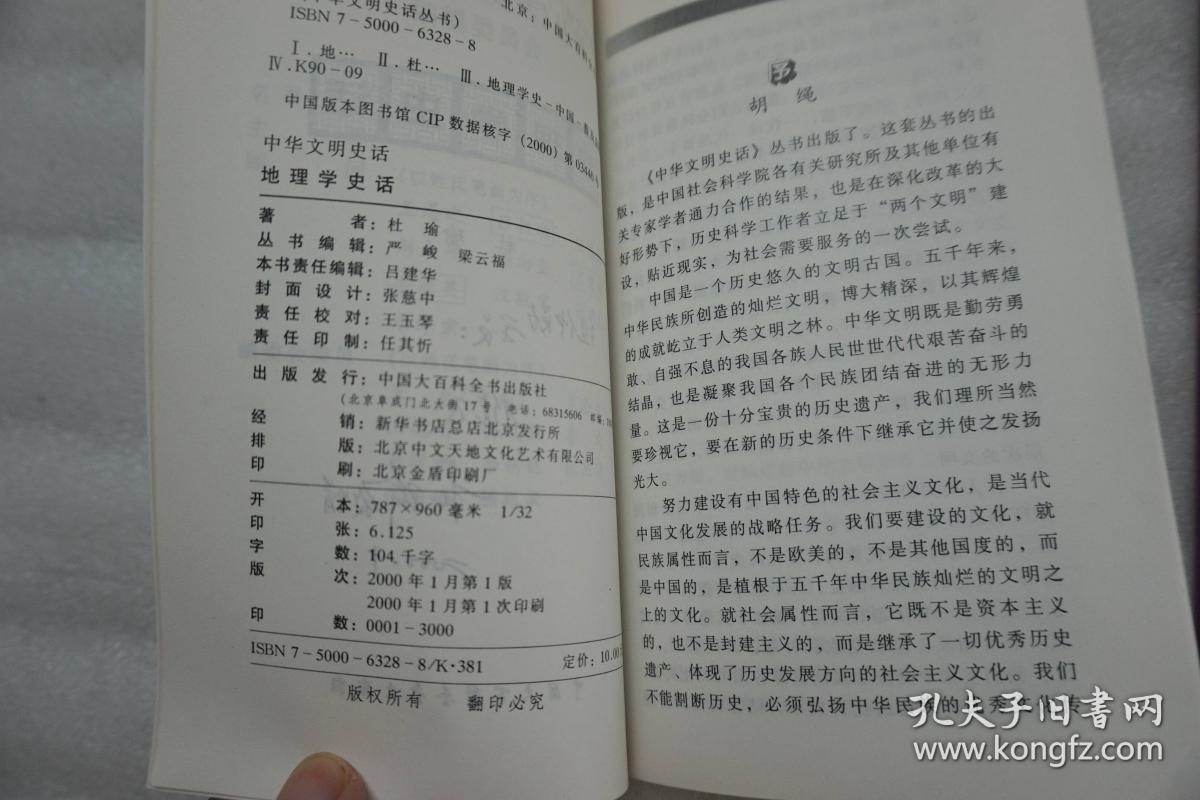 中华文明史话丛书)
北京:中国大百科全
ISBN 7-5000-6328-8
Ⅰ.地… Ⅱ.杜… Ⅲ.地理学史-中国-
Ⅳ.K90-09
中国版本图书馆 CIP 数据核字 (2000) 第 03446 号
中华文明史话
地理学史话
著 者:杜 瑜
丛书编辑:严 峻 梁云福
本书责任编辑:吕建华
封面设计:张慈中
责任校对:王玉琴
责任印制:任其忻
出版发行:中国大百科全书出版社
(北京阜成门北大街 17 号 电话:68315606 邮编:
经 销:新华书店总店北京发行所
排 版:北京中文天地文化艺术有限公司
印 刷:北京金盾印刷厂
开 本:787×960 毫米 1/32
印 张:6.125
字 数:104 千字
版 次:2000 年 1 月第 1 版
2000 年 1 月第 1 次印刷
印 数:0001-3000
ISBN 7-5000-6328-8/K·381 定价:10.00
版权所有 翻印必究
序
胡 绳
《中华文明史话》丛书出版了。这套丛书的出
版,是中国社会科学院各有关研究所及其他单位有
关专家学者通力合作的结果,也是在深化改革的大
好形势下,历史科学工作者立足于“两个文明”建
设,贴近现实,为社会需要服务的一次尝试。
中国是一个历史悠久的文明古国。五千年来,
中华民族所创造的灿烂文明,博大精深,以其辉煌
的成就屹立于人类文明之林。中华文明既是勤劳勇
敢、自强不息的我国各族人民世世代代艰苦奋斗的
结晶,也是凝聚我国各个民族团结奋进的无形力
量。这是一份十分宝贵的历史遗产,我们理所当然
要珍视它,要在新的历史条件下继承它并使之发扬
光大。
努力建设有中国特色的社会主义文化,是当代
中国文化发展的战略任务。我们要建设的文化,就
民族属性而言,不是欧美的,不是其他国度的,而
是中国的,是植根于五千年中华民族灿烂的文明之
上的文化。就社会属性而言,它既不是资本主义
的,也不是封建主义的,而是继承了一切优秀历史
遗产、体现了历史发展方向的社会主义文化。我们
不能割断历史,必须弘扬中华民族的优秀文化传
孔夫子旧书网
www.kongfz.com